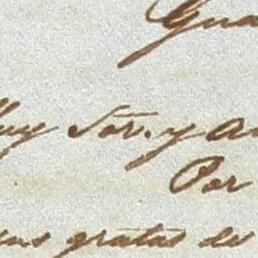 Gua
uy Sor. y A
Por
sus gratas de